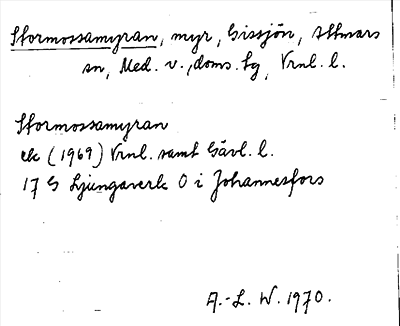 Stormossamyran, myr, Gissjön, Attmars
sn, Med. v., doms. bg, Vrnl. l.
Stormossamyran
ek (1969) Vrnl. samt Gävl. l.
17 G Ljungaverk O i Johannesfors
A.-L. W. 1970.